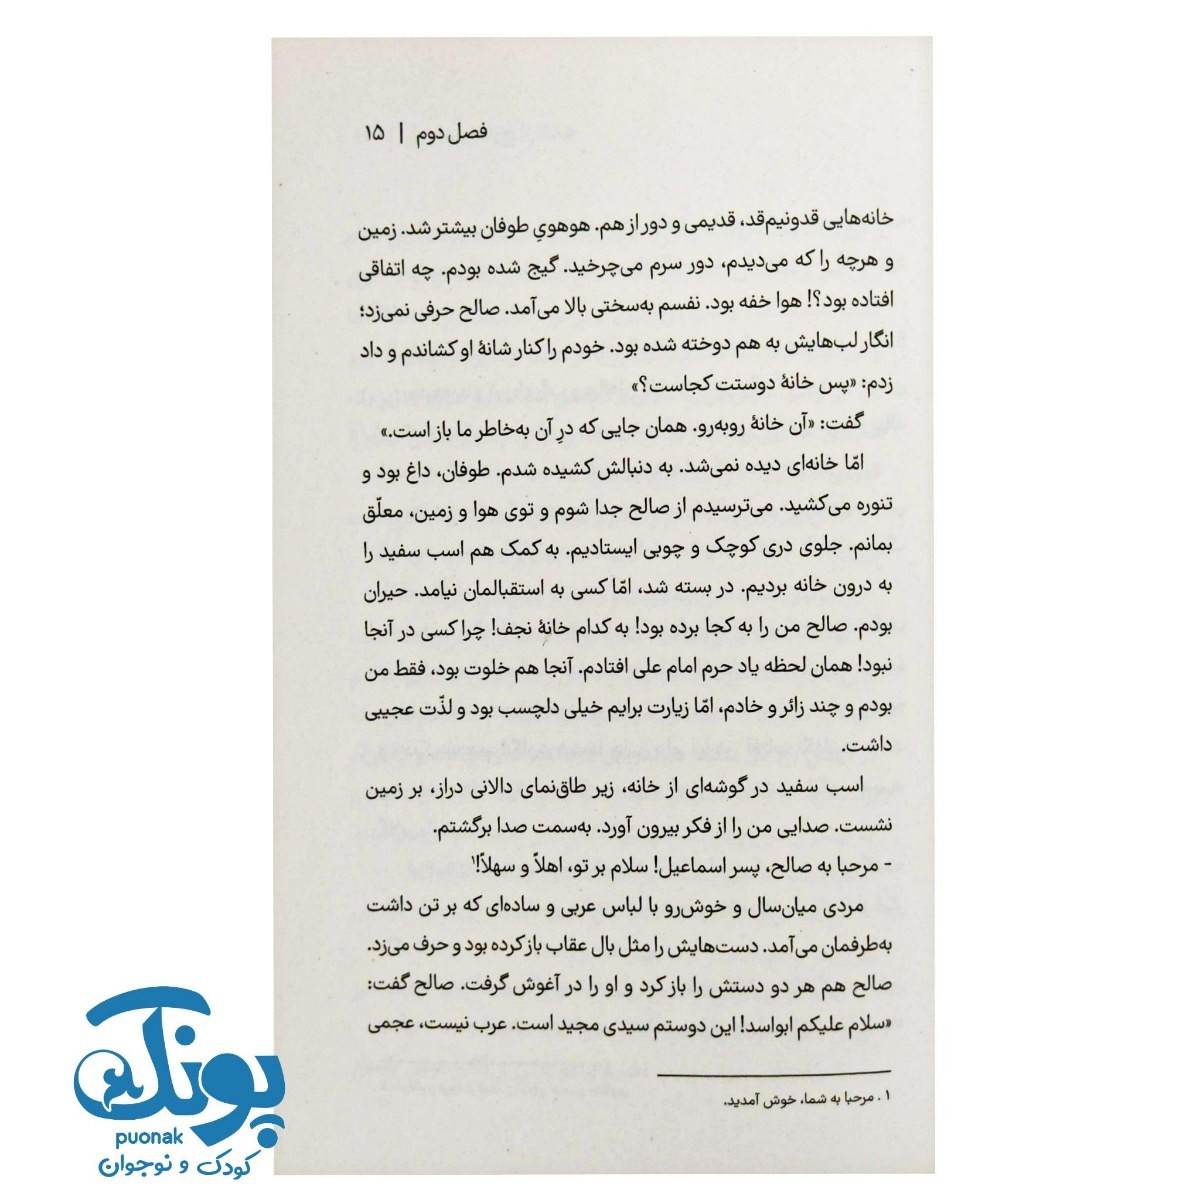 فصل دوم | ۱۵
خانه‌هایی قدونیم‌قد، قدیمی و دور از هم. هوهویِ طوفان بیشتر شد. زمین
و هرچه را که می‌دیدم، دور سرم می‌چرخید. گیج شده بودم. چه اتفاقی
افتاده بود؟! هوا خفه بود. نفسم به‌سختی بالا می‌آمد. صالح حرفی نمی‌زد؛
انگار لب‌هایش به هم دوخته شده بود. خودم را کنار شانهٔ او کشاندم و داد
زدم: «پس خانهٔ دوستت کجاست؟»
گفت: «آن خانهٔ روبه‌رو. همان جایی که درِ آن به‌خاطر ما باز است.»
امّا خانه‌ای دیده نمی‌شد. به دنبالش کشیده شدم. طوفان، داغ بود و
تنوره می‌کشید. می‌ترسیدم از صالح جدا شوم و توی هوا و زمین، معلّق
بمانم. جلوی دری کوچک و چوبی ایستادیم. به کمک هم اسب سفید را
به درون خانه بردیم. در بسته شد، امّا کسی به استقبالمان نیامد. حیران
بودم. صالح من را به کجا برده بود! به کدام خانهٔ نجف! چرا کسی در آنجا
نبود! همان لحظه یاد حرم امام علی افتادم. آنجا هم خلوت بود، فقط من
بودم و چند زائر و خادم، امّا زیارت برایم خیلی دلچسب بود و لذّت عجیبی
داشت.
اسب سفید در گوشه‌ای از خانه، زیر طاق‌نمای دالانی دراز، بر زمین
نشست. صدایی من را از فکر بیرون آورد. به‌سمت صدا برگشتم.
- مرحبا به صالح، پسر اسماعیل! سلام بر تو، اهلاً و سهلاً!۱
مردی میان‌سال و خوش‌رو با لباس عربی و ساده‌ای که بر تن داشت
به‌طرفمان می‌آمد. دست‌هایش را مثل بال عقاب باز کرده بود و حرف می‌زد.
صالح هم هر دو دستش را باز کرد و او را در آغوش گرفت. صالح گفت:
«سلام علیکم ابواسد! این دوستم سیدی مجید است. عرب نیست، عجمی
۱ . مرحبا به شما، خوش آمدید.
پونک
puonak
کودک و نوجوان